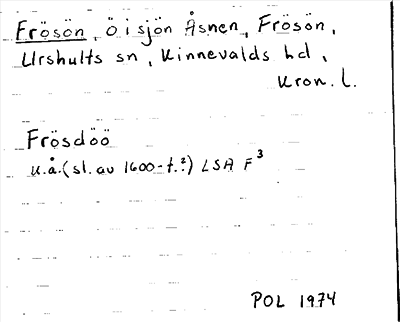 Frösön, ö i sjön Åsnen, Frösön,
Urshults sn, Kinnevalds hd,
Kron. l.
Frösdöö
u.å. (sl. av 1600-t.?) LSA F³
POL 1974